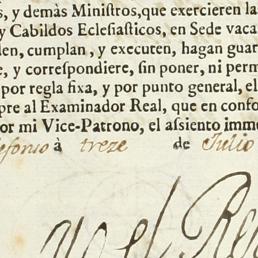 s, y demás Miniſtros, que exercieren la
y Cabildos Eclesiaſticos, en Sede vaca
den, cumplan, y executen, hagan guar
e, y correspondiere, sin poner, ni perm
por regla fixa, y por punto general, el
pre al Examinador Real, que en confo
or mi Vice-Patrono, el aſsiento imme
efonso à treze de Julio
Yo el Re